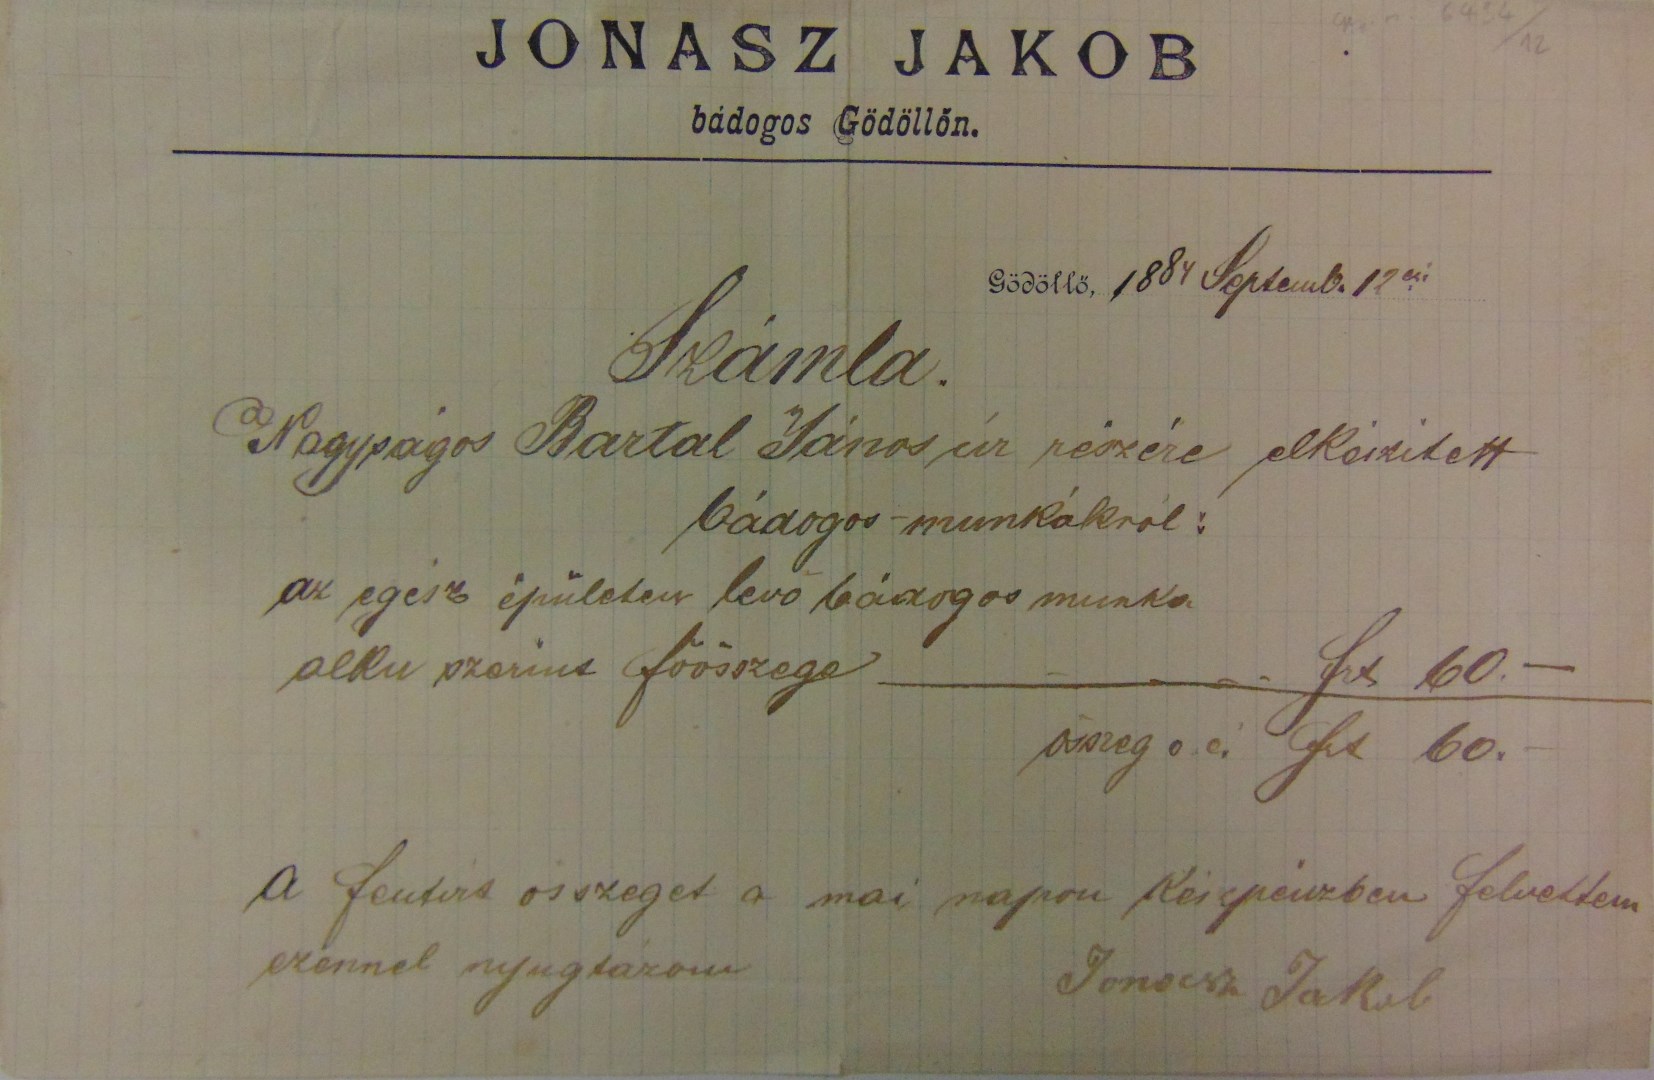 6434/12
JONASZ JAKOB
bádogos Gödöllőn.
Gödöllő, 1884 Septemb. 12én
Számla.
Nagyságos Bartal János úr részére elkészitett
bádogos-munkákról:
az egész épületen levő bádogos munka
alku szerint főösszege frt 60.—
összeg o. é. frt 60.—
A fentirt összeget a mai napon készpénzben felvettem
ezennel nyugtázom
Jonasz Jakob